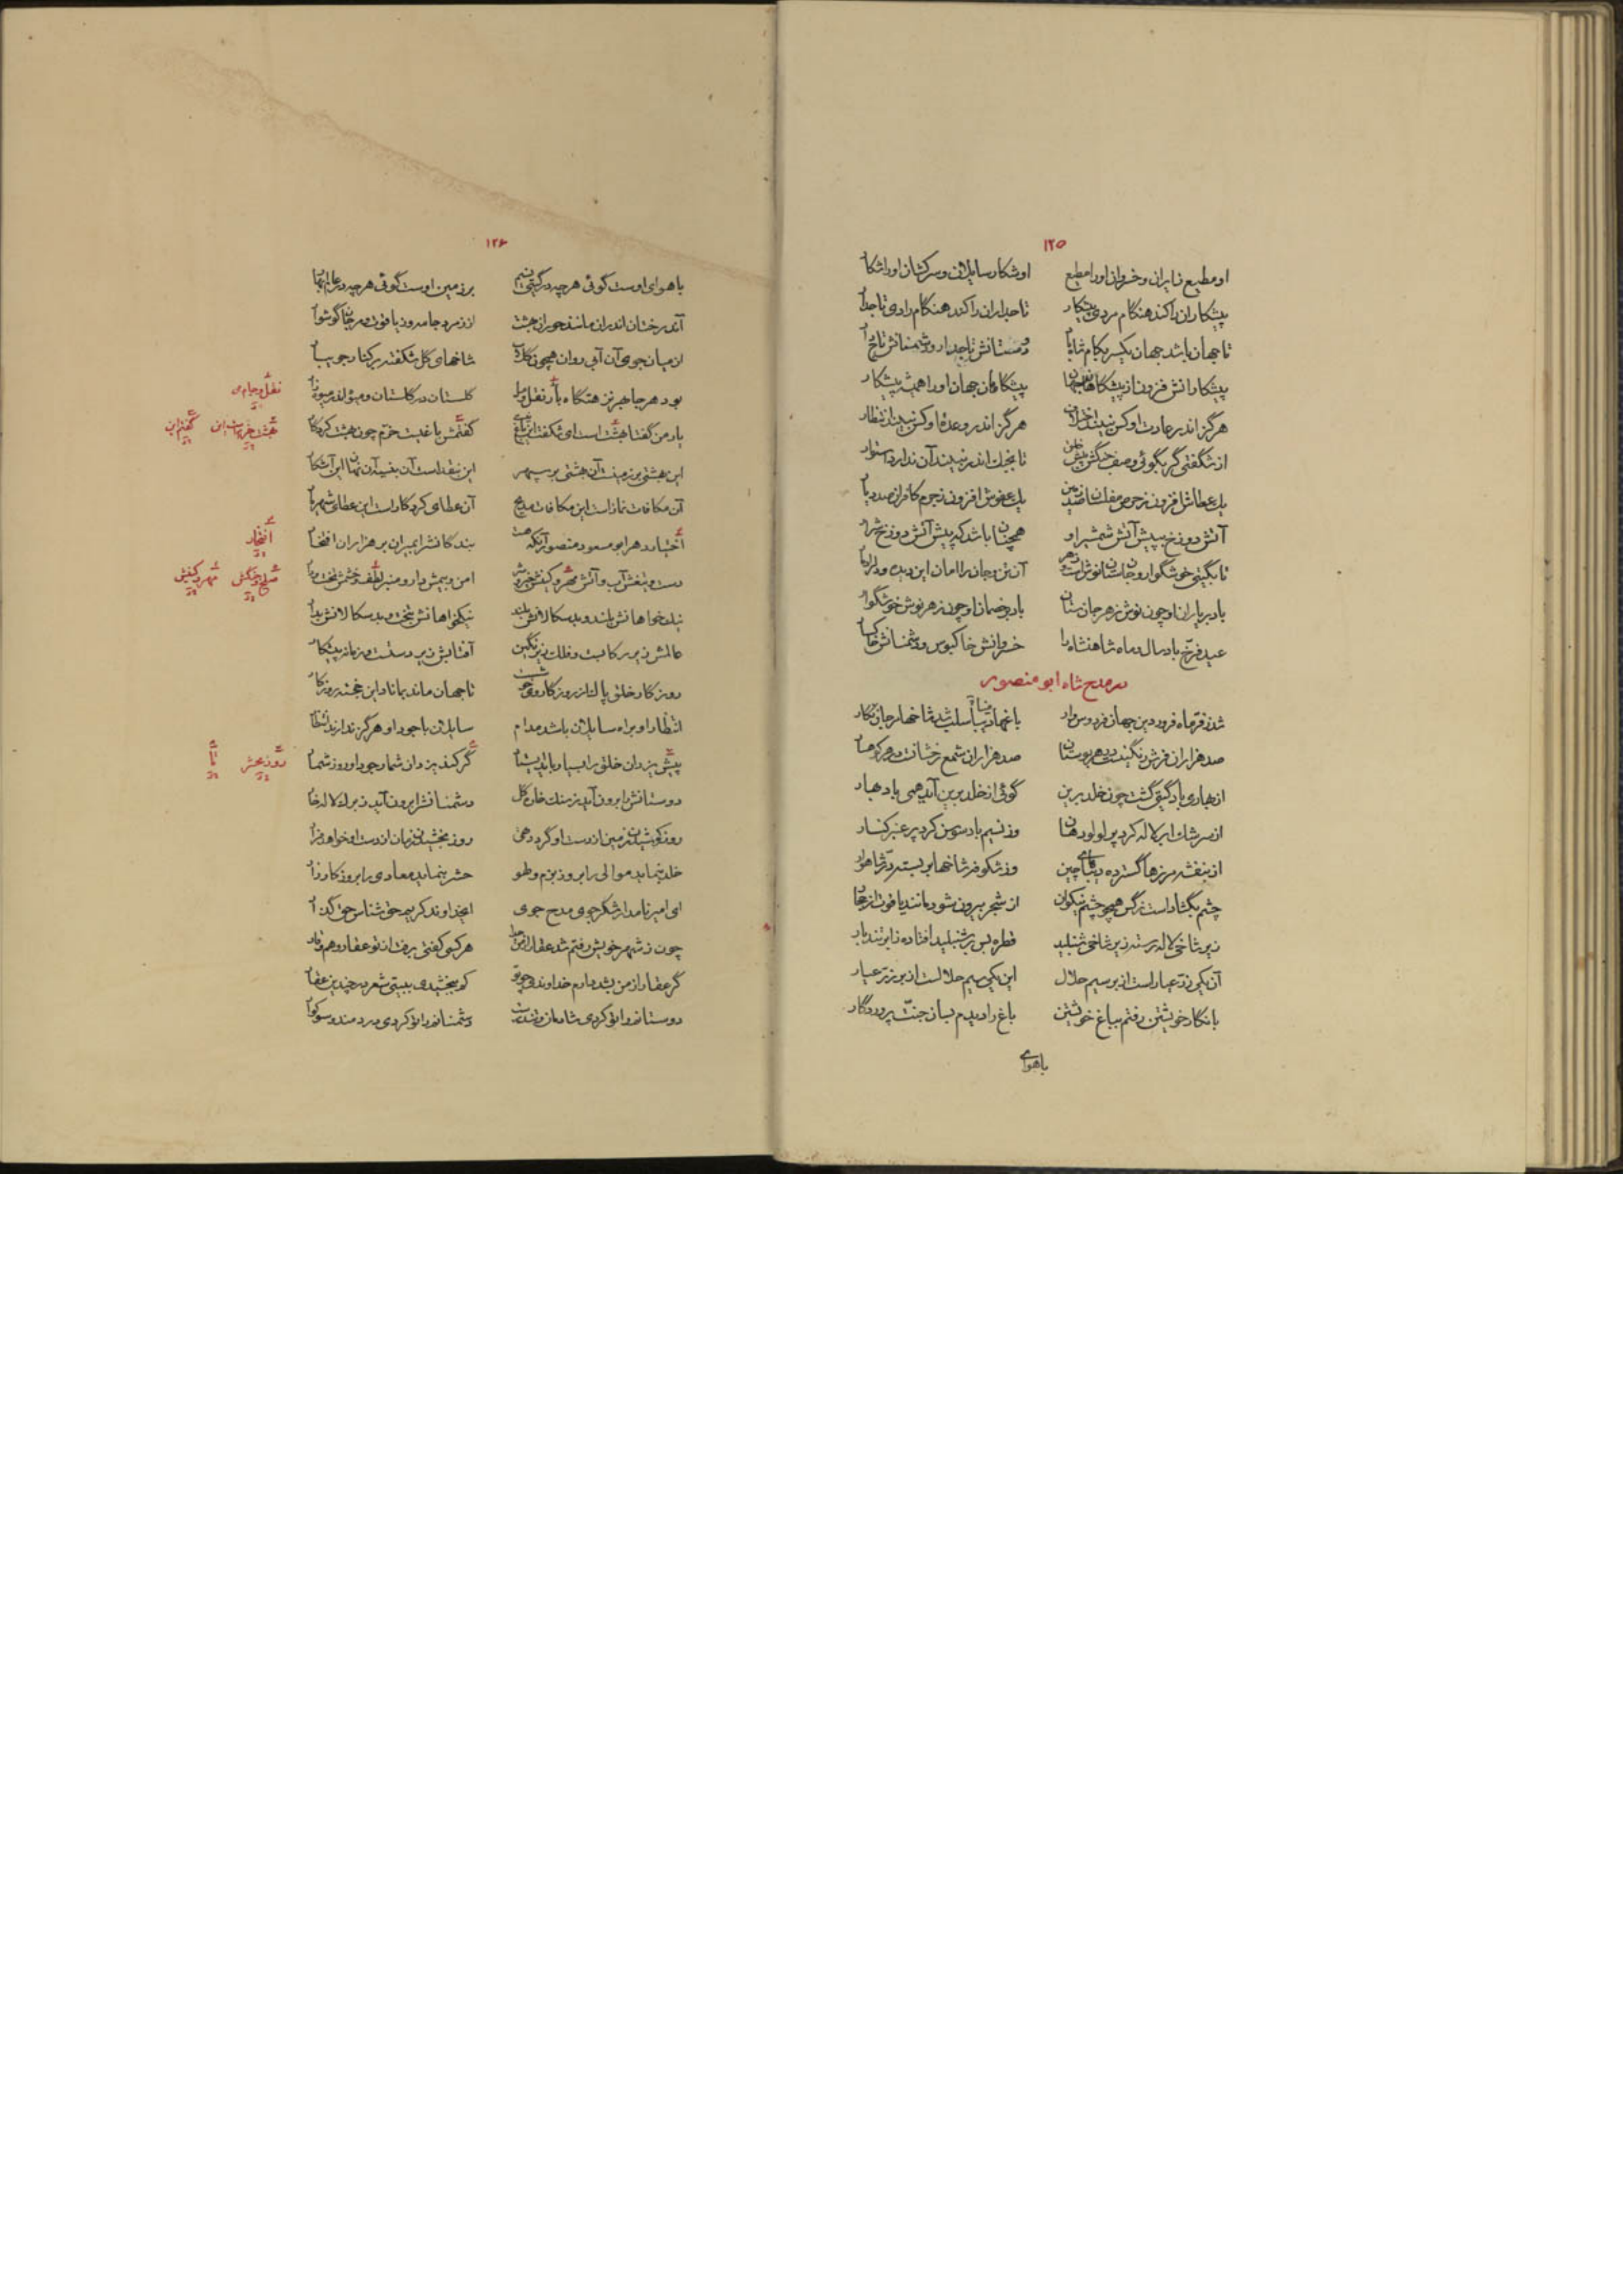 ۱۲۵
او مطیع زایران و خسروان او را مطیع او شکار سایلان و سرکشان او را شکار
پیشکاران را کند هنگام مردی پیشکار تاجداران را کند هنگام رادی تاجدار
تا جهان باشد جهان یکسر بکام شاه باد دوستانش تاجدار و دشمنانش تاج دار
پیشکارانش فزون از پیشکاهان جهان پیشکاهان جهان او را همیشه پیشکار
هرگز اندر عادت او کس نبیند اختلاف هرگز اندر وعدهٔ او کس نبیند انتظار
از شگفتی گر بگوئی وصف جنگش پیش خلق تا بجنگ اندر نبیند آن ندارد استوار
یك عطااش افزون ز حرص مفلسان یك عفوش افزون ز جرم کافران صد بار
آتش دوزخ به پیش آتش شمشیر او همچنان باشد که پیش آتش دوزخ شرار
تا بگیتی خوشگوار و جان ستان نوش است و زهر آن تن و جان را امان این دیده و دل را
باد بر یاران او چون نوش زهر جان ستان باد بر خصمان او چون زهر نوش خوشگوار
عید فرخ باد سال و ماه شاهنشاه را خسروانش خاکبوس و دشمنانش خاکسار
در مدح شاه ابو منصور
شد ز فر ماه فروردین جهان فردوس وار باغها دیبا سلب شد شاخها مرجان نگار
صد هزاران فرش رنگین است در هر بوستان صد هزاران شمع رخشانست در هر کوهسار
از بهاری باد گیتی گشت چون خلد برین گوئی از خلد برین آید همی باد بهار
از سرشك ابر لاله کرد پر لولو دهان وز نسیم باد سوسن کرد پر عنبر کنار
از بنفشه مرزها گسترده دیبای چین وز شکوفه شاخها بر بسته در شاهوار
چشم بگشاد است نرگس همچو چشم نیکوان از شجر بیرون شود مانند یاقوت از حجار
زیر شاخی لاله رسته زیر شاخی شنبلید قطره بس بر شنبلید افتاده ز ابر تند بار
آن یکی زر عیار است از بر سیم حلال این یکی سیم حلالست از بر زر عیار
با نگار خویشتن رفتم بباغ خویشتن باغ را دیدم بسان جنت پروردگار
با هوای
۱۲۶
با هوای اوست گوئی هر چه در گیتی نسیم بر زمین اوست گوئی هر چه در عالم بهار
آن درختان اندر آن مانند حوران بهشت از زمرد جامه وز یاقوت و مرجان گوشوار
از میان جوی آن آبی روان همچون گلاب شاخهای گل شکفته بر کنار جویبار
بود هر جا هر نز هنگاه یار نقل ما گلستان در گلستان و میوه اندر میوه زار
یار من گفتا بهشت است ای شگفت این باغ گفتمش باغیست خرم چون بهشت کردگار
این بهشتی بر زمینست آن بهشتی بر سپهر این بنقد است آن بنسیه آن نهان این آشکار
آن مکافات نماز است این مکافات مدیح آن عطای کردگار است این عطای شهریار
اختیار دهر ابو مسعود منصور آنکه هست بندگانش را بمیران بر هزاران افتخار
دست و تیغش آب و آتش مهر و کینش خیر و شر امن و بیمش دار و منبر لطف و خشمش تخت و دار
نیك خواهانش بلند و بد سکالانش بلند نیکخواهانش بتخت و بد سکالانش بدار
عالمش زیر رکابست و فلك زیر نگین آفتابش زیر دستست و زمانه پیشکار
روزگار خلق پالاند ز روزگار روی خوست تا جهان ماند بماناد این خجسته روزگار
انتظار او براه سایلان باشد مدام سایلان با جود او هرگز ندارند انتظار
پیش یزدان خلق را بسیار باید ایستاد گر کند یزدان شمار جود او روز شمار
دوستانش را برون آید ز سنك خاره گل دشمنانش را برون آید ز برك لاله خار
روز کوشیدن زمین از دست او گردد همی روز بخشیدن زمان از دست او خواهد فرار
خلد بنماید موالی را بروز بزم و طو حشر بنماید معادی را بروز کارزار
ای امیر نامدار شکر جوی مدح جوی ای خداوند کریم حق شناس حق گذار
چون ز شهر خویش رفتم شد عقار از من هر کسی گفتی برفت از تو عقار و هم وقار
گر عقار از من بشد مادم خداوندی چو تو کو ببخشیدی ببیتی شعر بر چندین عقار
دوستانم را تو کردی شادمان و تندرست دشمنانم را تو کردی دردمند و سوگوار
نقل و جام می
بهشت خرمست این گفتم این
افتخار
صلح و جنگش مهر و کینش
روز محشر تا